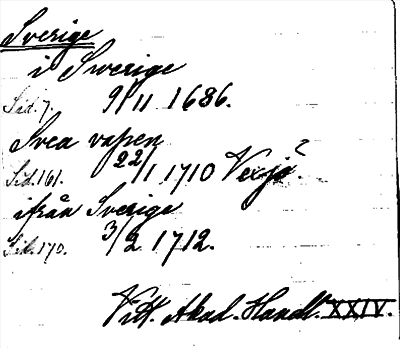 Sverige
i Swerige
Sid. 7. 9/11 1686.
Svea vapen
Sid. 161. 22/1 1710 Vexjö?
ifrån Sverige
Sid. 170. 3/2 1712.
Vitt. Akad. Handl. XXIV.